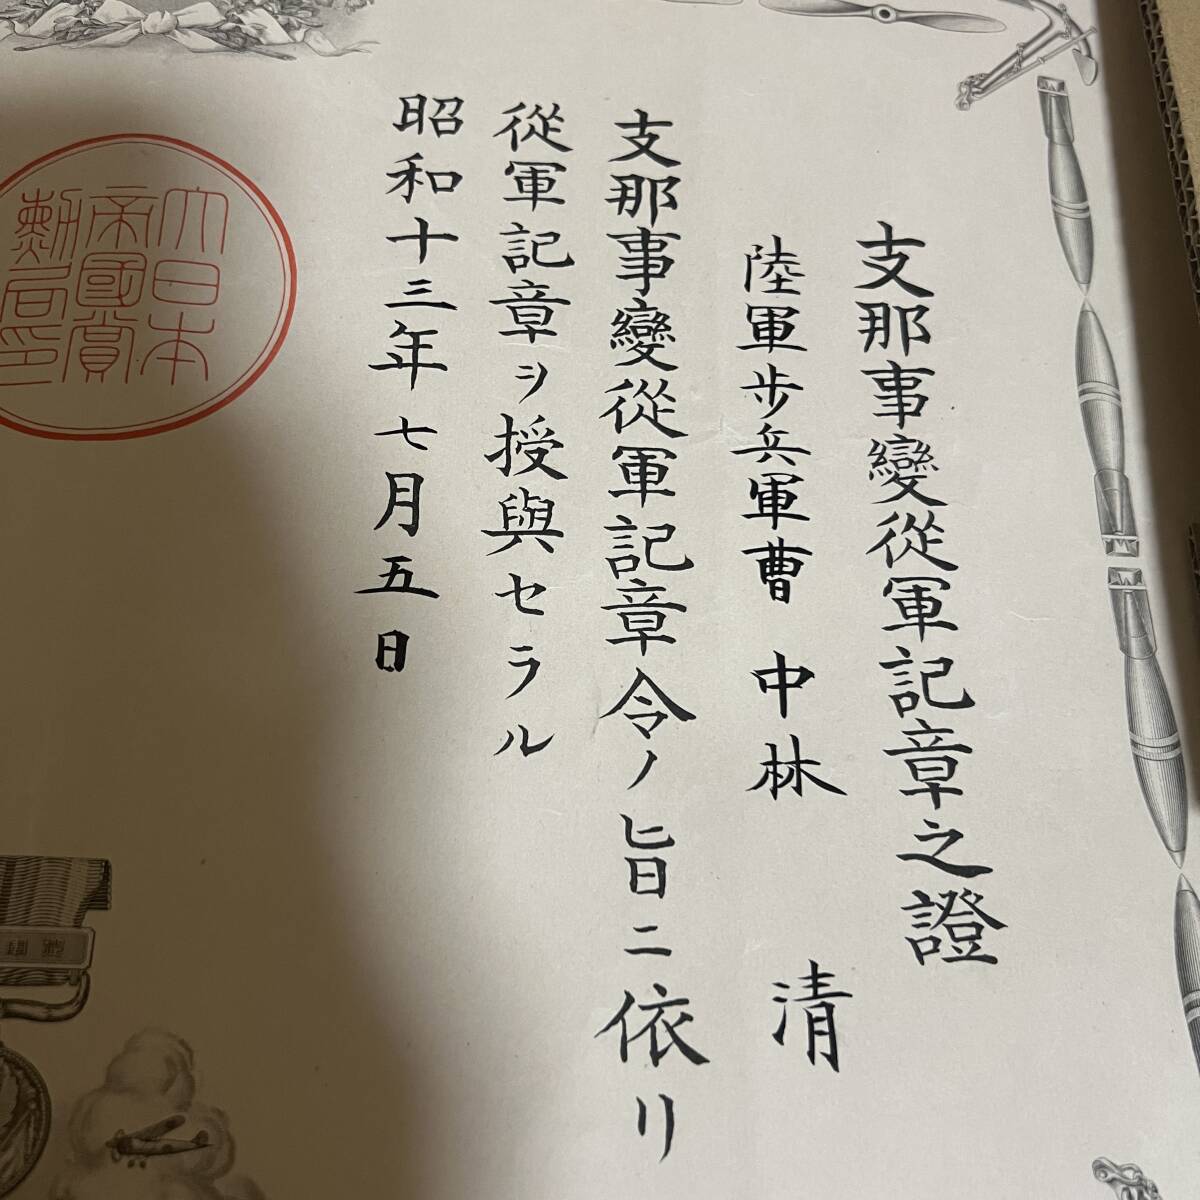 支那事變從軍記章之證
陸軍步兵軍曹 中林 清
支那事變從軍記章令ノ旨ニ依リ
從軍記章ヲ授與セラル
昭和十三年七月五日
大日本
帝國賞
勲局印